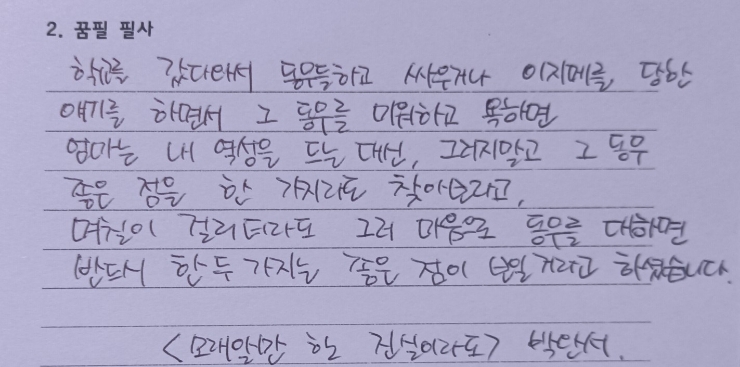 2. 꿈필 필사
학교를 갔다와서 동무들하고 싸우거나 이지메를, 당한
얘기를 하면서 그 동무를 미워하고 욕하면
엄마는 내 역성을 드는 대신, 그러지말고 그 동무
좋은 점을 한 가지라도 찾아보라고,
며칠이 걸리더라도 그러 마음으로 동무를 대하면
반드시 한두 가지는 좋은 점이 보일거라고 하셨습니다.
<모래알만 한 진실이라도> 박완서.